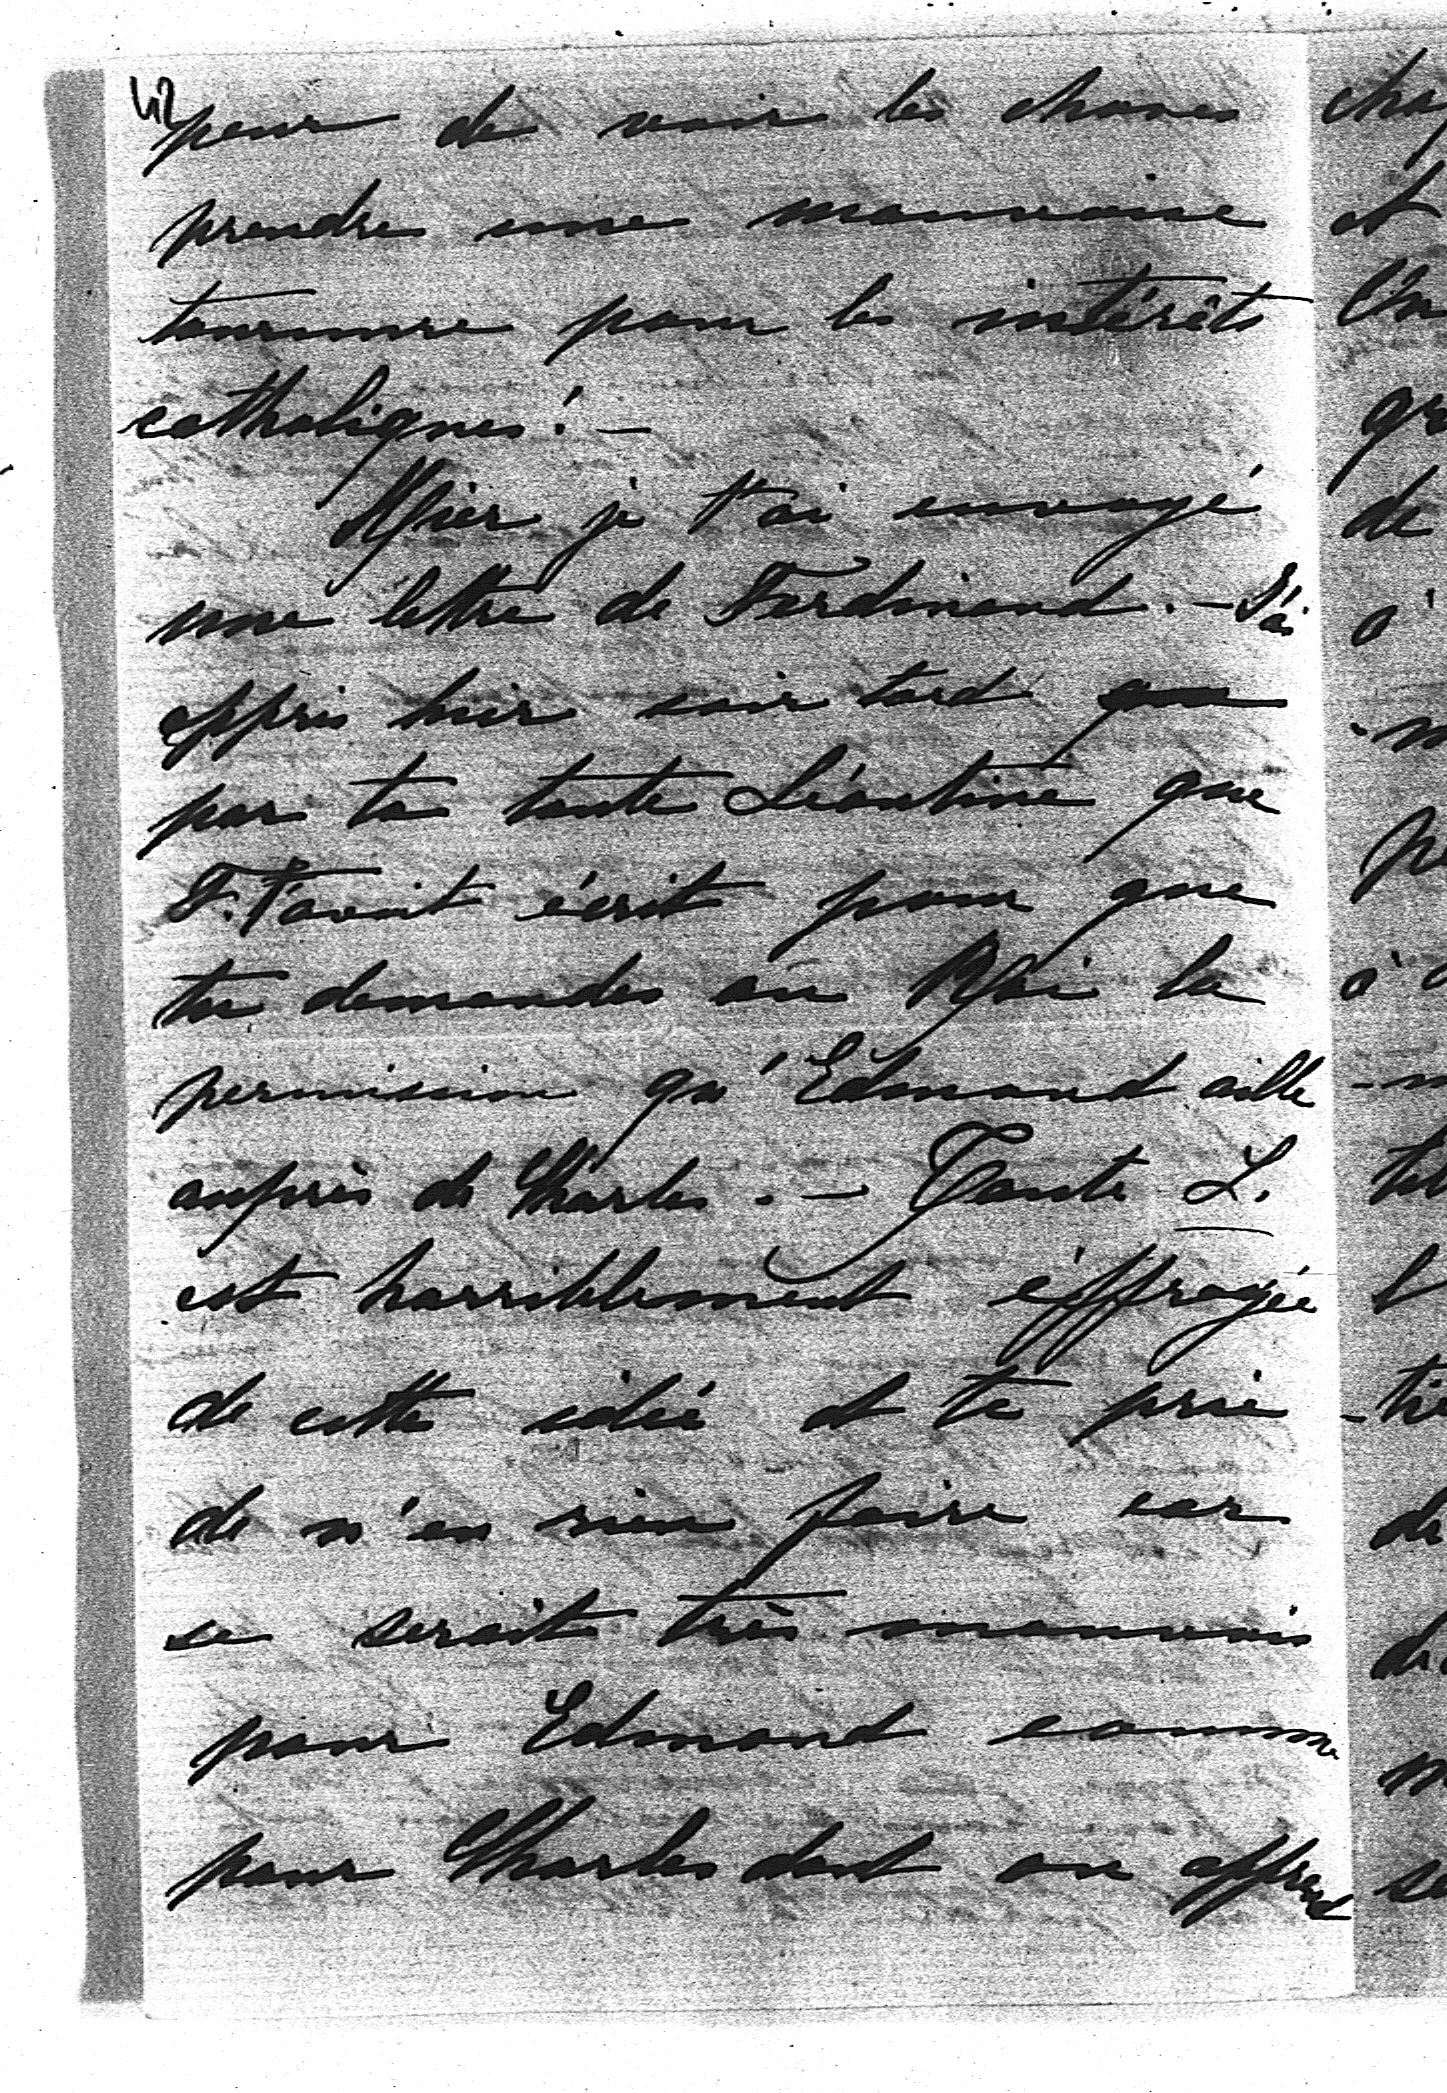 42
peur de voir les choses
prendre une mauvaise
tournure pour les intérêts
catholiques! –
Hier je t'ai envoyé
une lettre de Ferdinand. – J'ai
appris hier soir tard
par ta tante Léontine que
F. t'avait écrit pour que
tu demandes au Roi la
permission qu'Edmond aille
auprès de Charles. – Tante L.
est horriblement éffrayée
de cette idée et te prie
de n'en rien faire car
ce serait très mauvais
pour Edmond comme
pour Charles dont on apprend